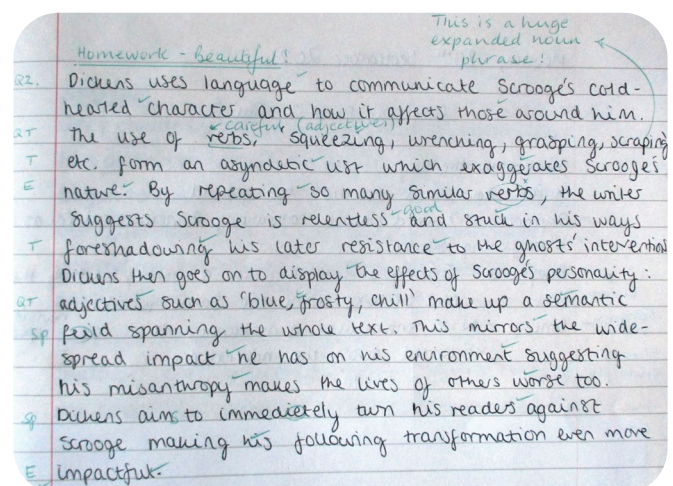 This is a huge
expanded noun
phrase!
Homework - Beautiful!
Q2. Dickens uses language to communicate Scrooge's cold-
hearted character and how it affects those around him.
careful (adjectives)
QT The use of verbs, 'squeezing, wrenching, grasping, scraping'
T etc. form an asyndetic list which exaggerates Scrooge's
E nature. By repeating so many similar verbs, the writer
good
suggests Scrooge is relentless and stuck in his ways
T foreshadowing his later resistance to the ghosts' intervention
Dickens then goes on to display the effects of Scrooge's personality:
QT adjectives such as 'blue, frosty, chill' make up a semantic
Sp feild spanning the whole text. This mirrors the wide-
spread impact he has on his environment suggesting
his misanthropy makes the lives of others worse too.
Sp Dickens aims to immedietely turn his readers against
Scrooge making his following transformation even more
E impactful.